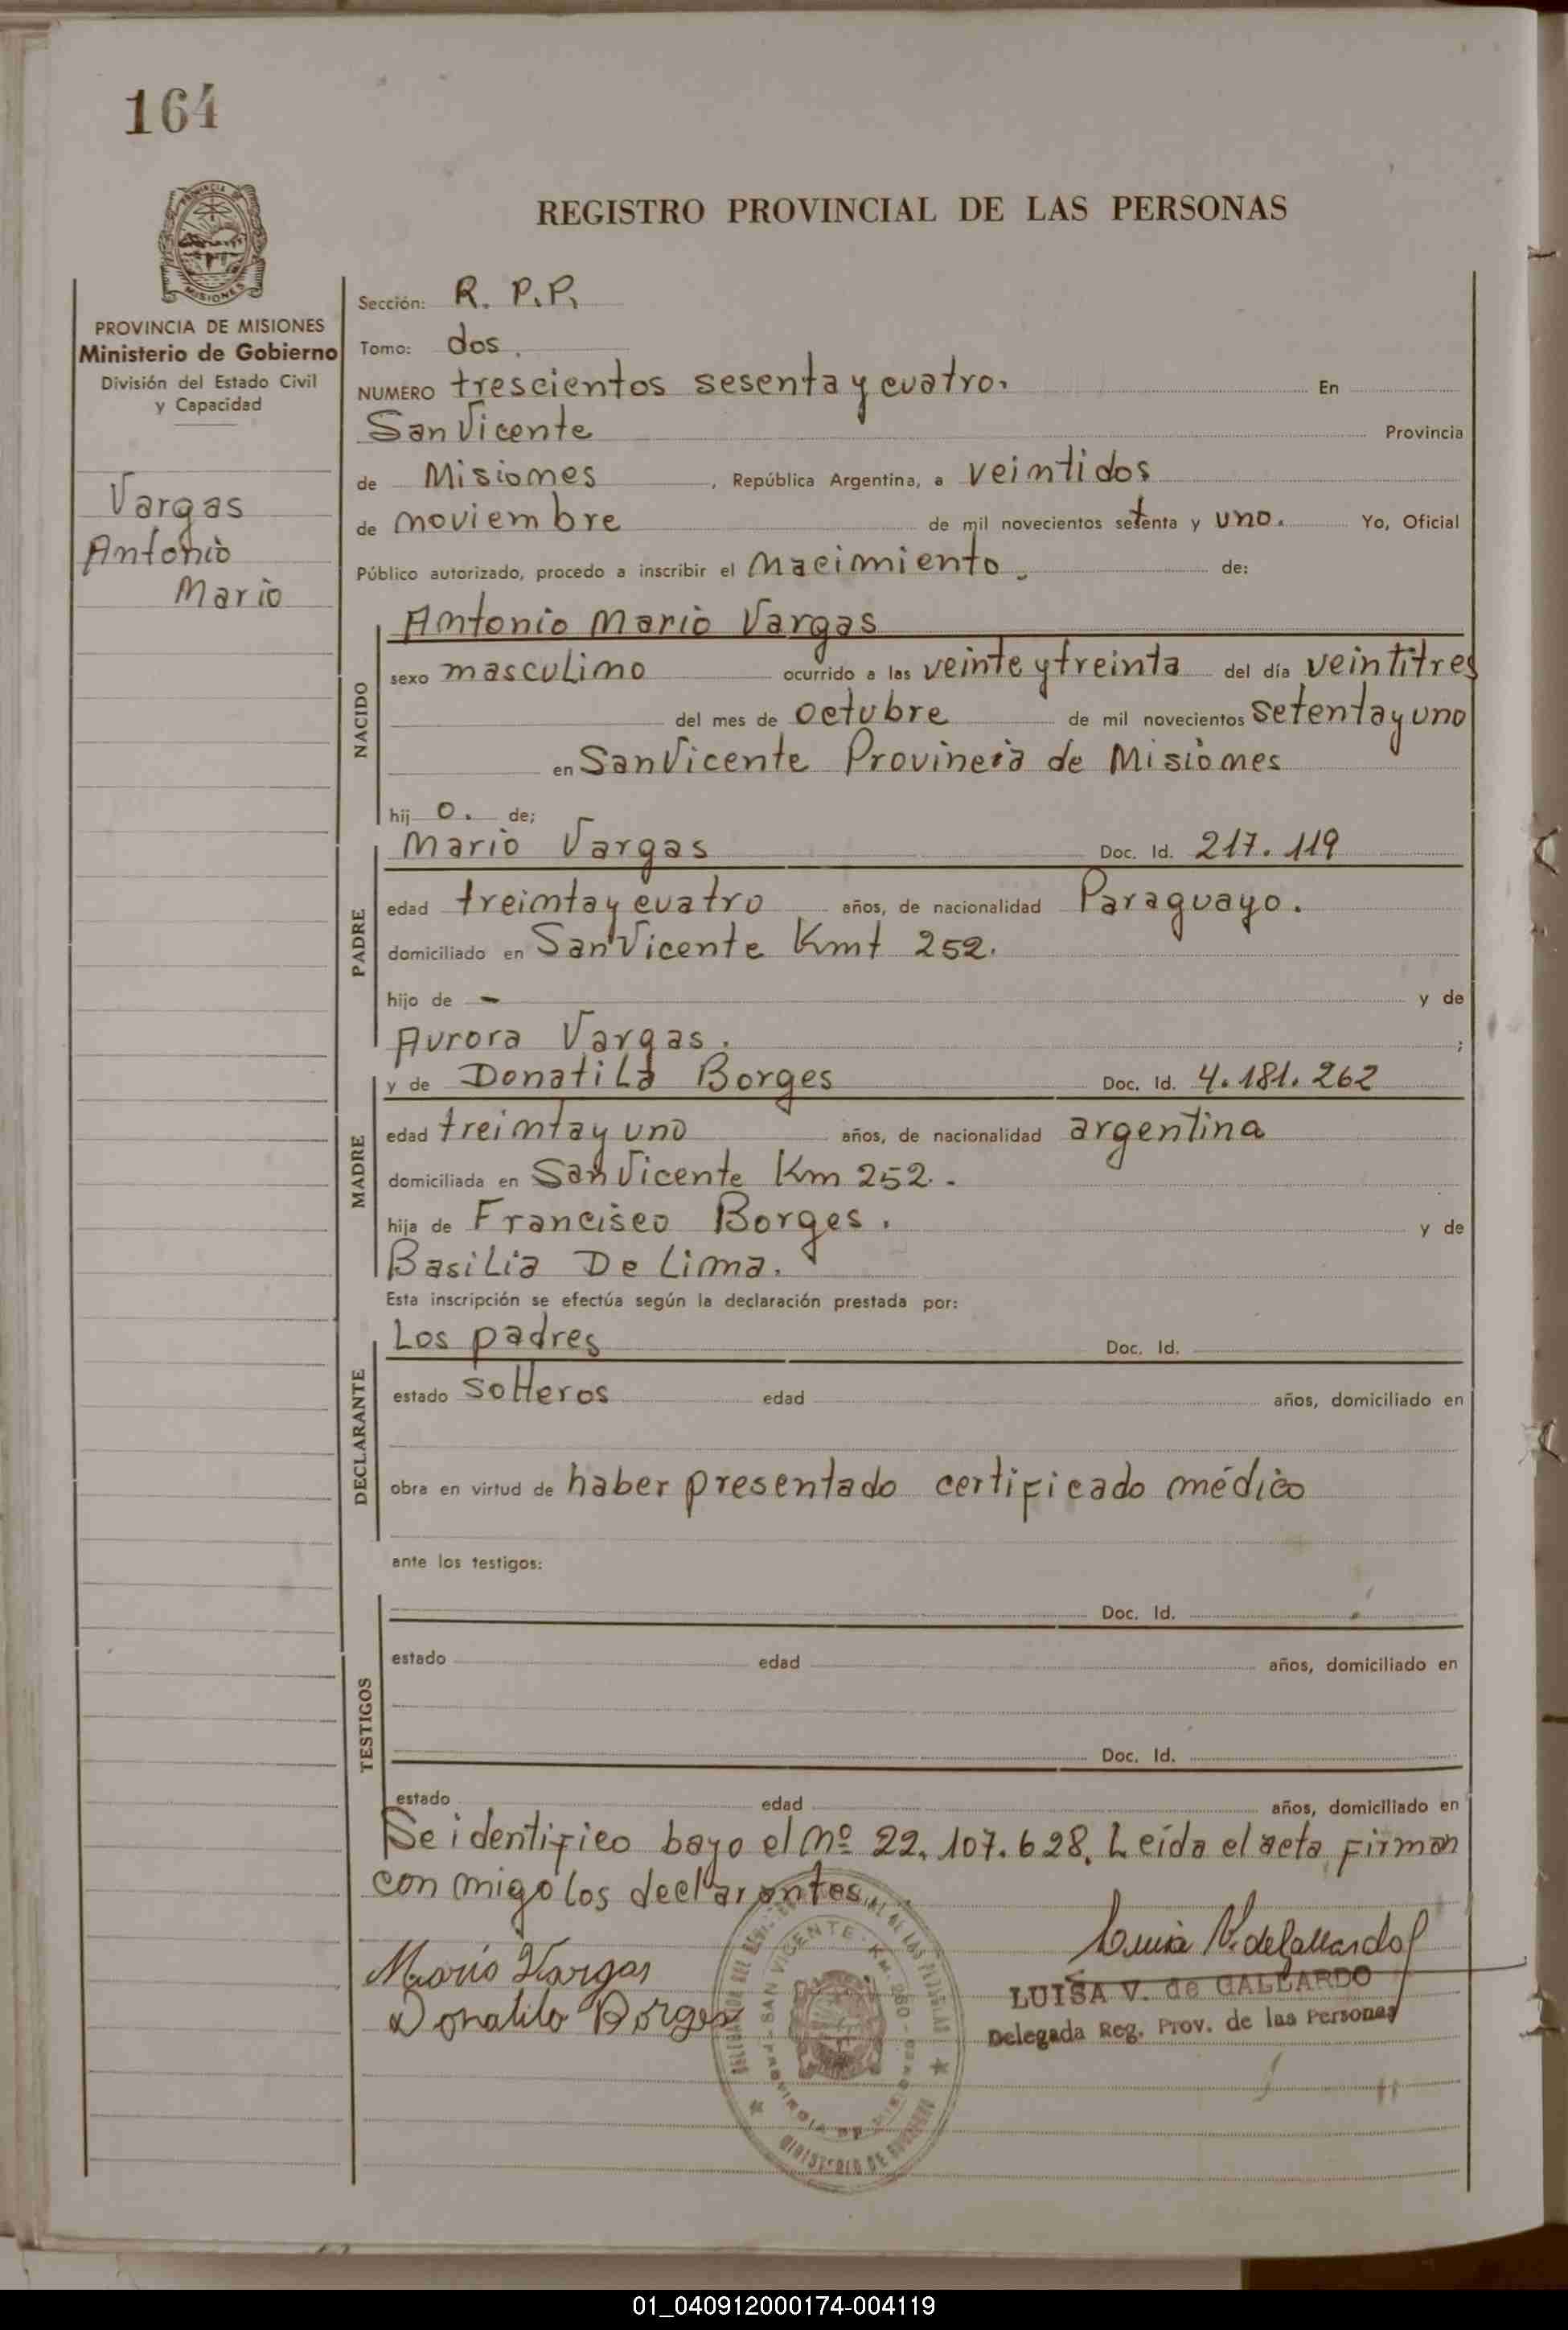 164
REGISTRO PROVINCIAL DE LAS PERSONAS
PROVINCIA DE MISIONES
Ministerio de Gobierno
División del Estado Civil
y Capacidad
Vargas
Antonio
Mario
Sección: R. P.P.
Tomo: dos.
NUMERO trescientos sesenta y cuatro. En
San Vicente Provincia
de Misiones, República Argentina, a veintidos
de noviembre de mil novecientos setenta y uno. Yo, Oficial
Público autorizado, procedo a inscribir el Nacimiento. de:
NACIDO
Antonio Mario Vargas
sexo masculino ocurrido a las veinte y treinta del día veintitres
del mes de octubre de mil novecientos setenta y uno
en San Vicente Provincia de Misiones
hij o. de;
PADRE
Mario Vargas Doc. Id. 217.119
edad treinta y cuatro años, de nacionalidad Paraguayo.
domiciliado en San Vicente Kmt 252.
hijo de - y de
Aurora Vargas. ;
MADRE
y de Donatila Borges Doc. Id. 4.181.262
edad treinta y uno años, de nacionalidad argentina
domiciliada en San Vicente Km 252.-
hija de Francisco Borges. y de
Basilia De Lima.
Esta inscripción se efectúa según la declaración prestada por:
DECLARANTE
Los padres Doc. Id.
estado solteros edad años, domiciliado en
obra en virtud de haber presentado certificado médico
ante los testigos:
TESTIGOS
Doc. Id.
estado edad años, domiciliado en
Doc. Id.
estado edad años, domiciliado en
Se identifico bayo el Nº 22.107.628. Leída el acta firman
con migo los declarantes
Mario Vargas
Donatila Borges
Luisa V. de Gallardo
LUISA V. de GALLARDO
Delegada Reg. Prov. de las Personas
01_040912000174-004119